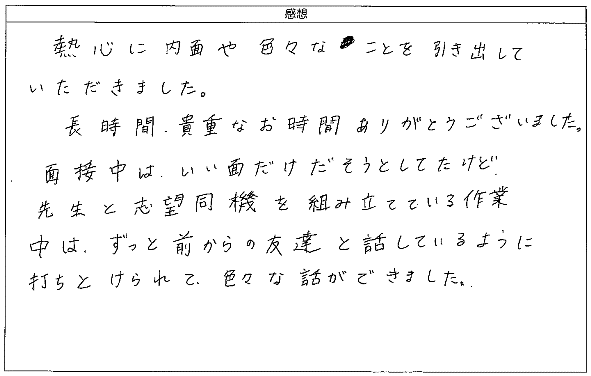 感想
熱心に内面や色々なことを引き出して
いただきました。
長時間、貴重なお時間ありがとうございました。
面接中は、いい面だけだそうとしてたけど、
先生と志望同機を組み立てている作業
中は、ずっと前からの友達と話しているように
打ちとけられて、色々な話ができました。